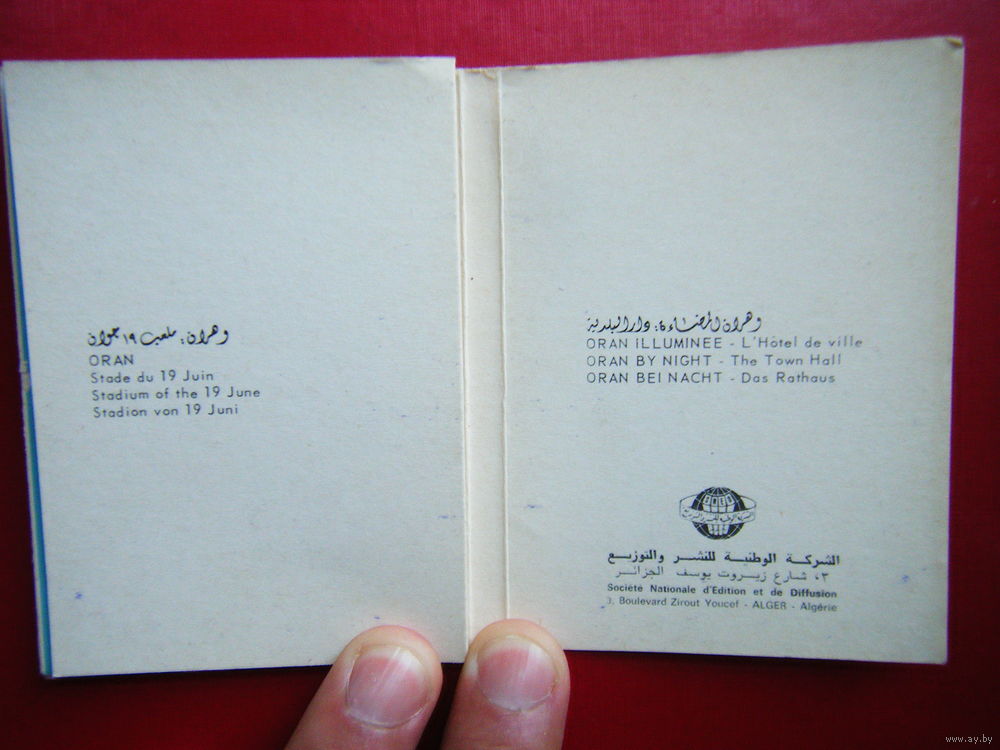 وهران: ملعب ١٩ جوان
ORAN
Stade du 19 Juin
Stadium of the 19 June
Stadion von 19 Juni
وهران المضاءة: دار البلدية
ORAN ILLUMINEE - L'Hôtel de ville
ORAN BY NIGHT - The Town Hall
ORAN BEI NACHT - Das Rathaus
الشركة الوطنية للنشر والتوزيع
٣، شارع زيروت يوسف الجزائر
Société Nationale d'Edition et de Diffusion
3, Boulevard Zirout Youcef - ALGER - Algérie
www.ay.by